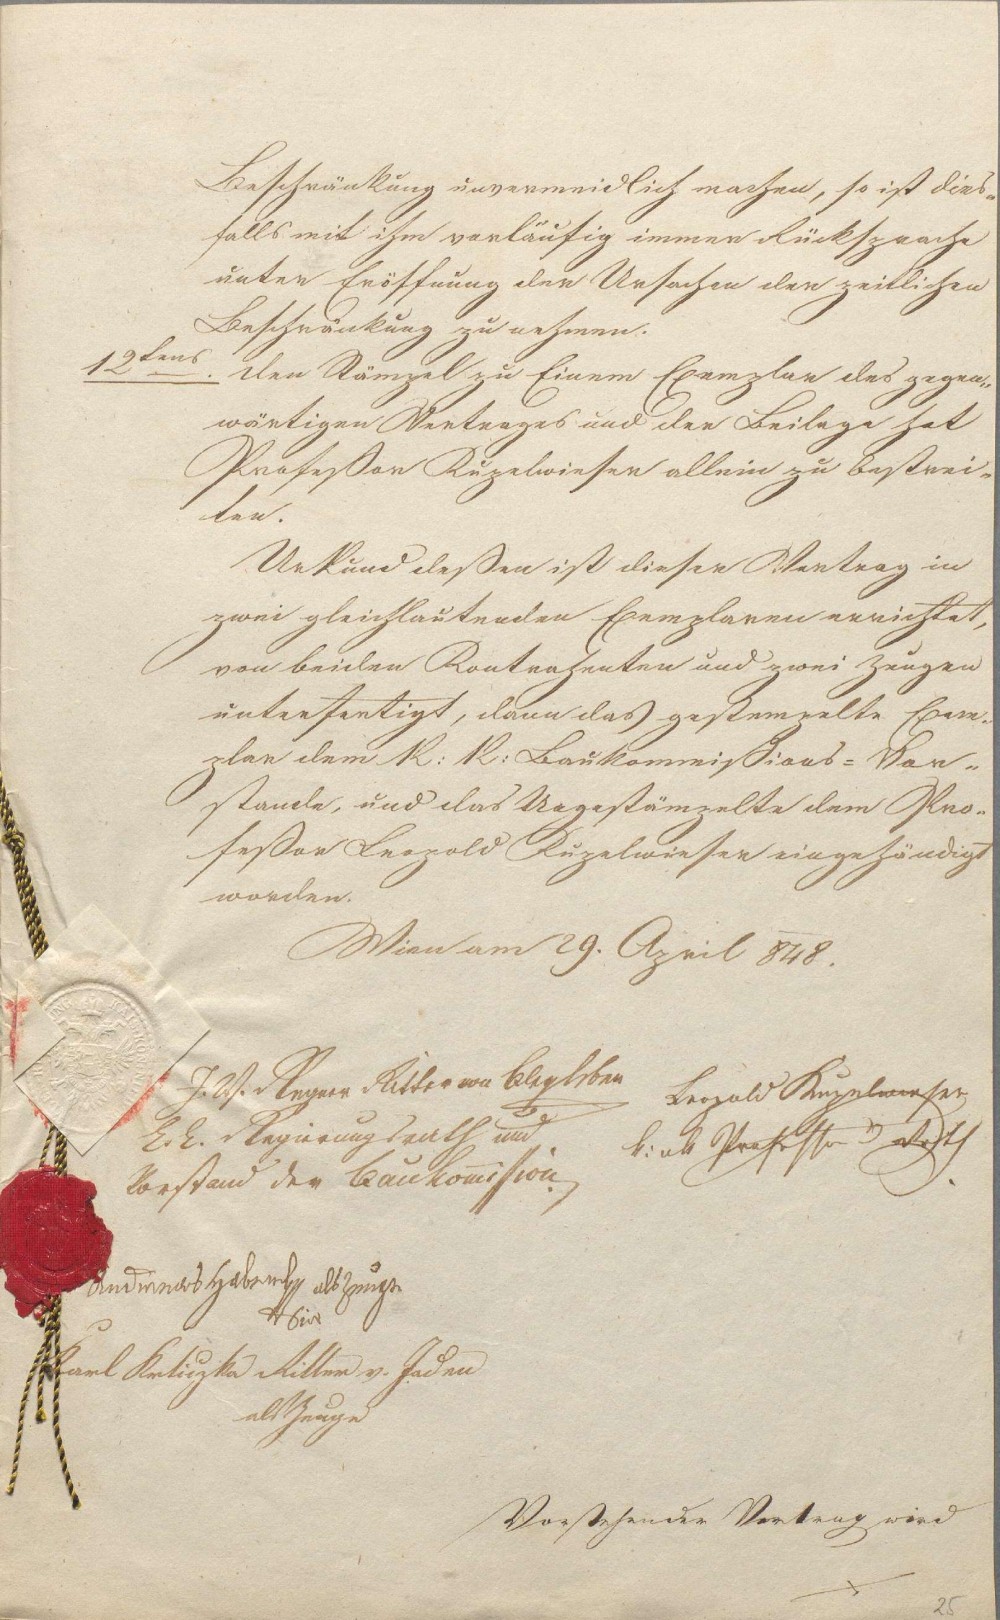 Beschränkung unvermeidlich machen, so ist dies-
falls mit ihm vorläufig immer Rücksprache
unter Eröffnung der Ursachen der zeitlichen
Beschränkung zu nehmen.
12tens. Den Stämpel zu Einem Exemplar des gegen-
wärtigen Vertrages und der Beilage hat
Profeßor Kupelwieser allein zu bestrei-
ten.
Urkund deßen ist dieser Vertrag in
zwei gleichlautenden Exemplaren errichtet,
von beiden Kontrahenten und zwei Zeugen
unterfertigt, dann das gestempelte Exem-
plar dem K: K: Baukommißions= Vor-
stande, und das Ungestämpelte dem Pro-
feßor Leopold Kupelwieser eingehändigt
worden.
Wien am 29. April 848.
Ritter von Bleyleben
Leopold Kupelwieser
k. k. Regierungsrath und
k: ak Professor
Vorstand der Baukommission
Andreas als Zeuge
Karl Ritter v. Jaden
als Zeuge
Vorstehender Vertrag wird
25